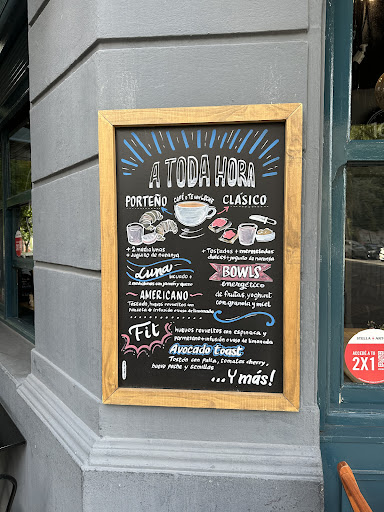 A TODA HORA
CAFÉ o TÉ con leche
PORTEÑO
CLÁSICO
+ 2 medialunas
+ juguito de naranja
+ Tostadas + mermeladas
dulces + juguito de naranja
Luna
licuado +
2 medialunas con jamón y queso
BOWLS
energético
de frutas, yoghurt
con granola y miel
AMERICANO
Tostado, huevos revueltos con
panceta + infusión o vaso de limonada
Fit
huevos revueltos con espinaca y
parmesano + infusión o vaso de limonada
Avocado toast
Tostón con palta, tomates cherry,
huevo poché y semillas
...Y más!
STELLA ART
ACCEDÉ A TU
2X1